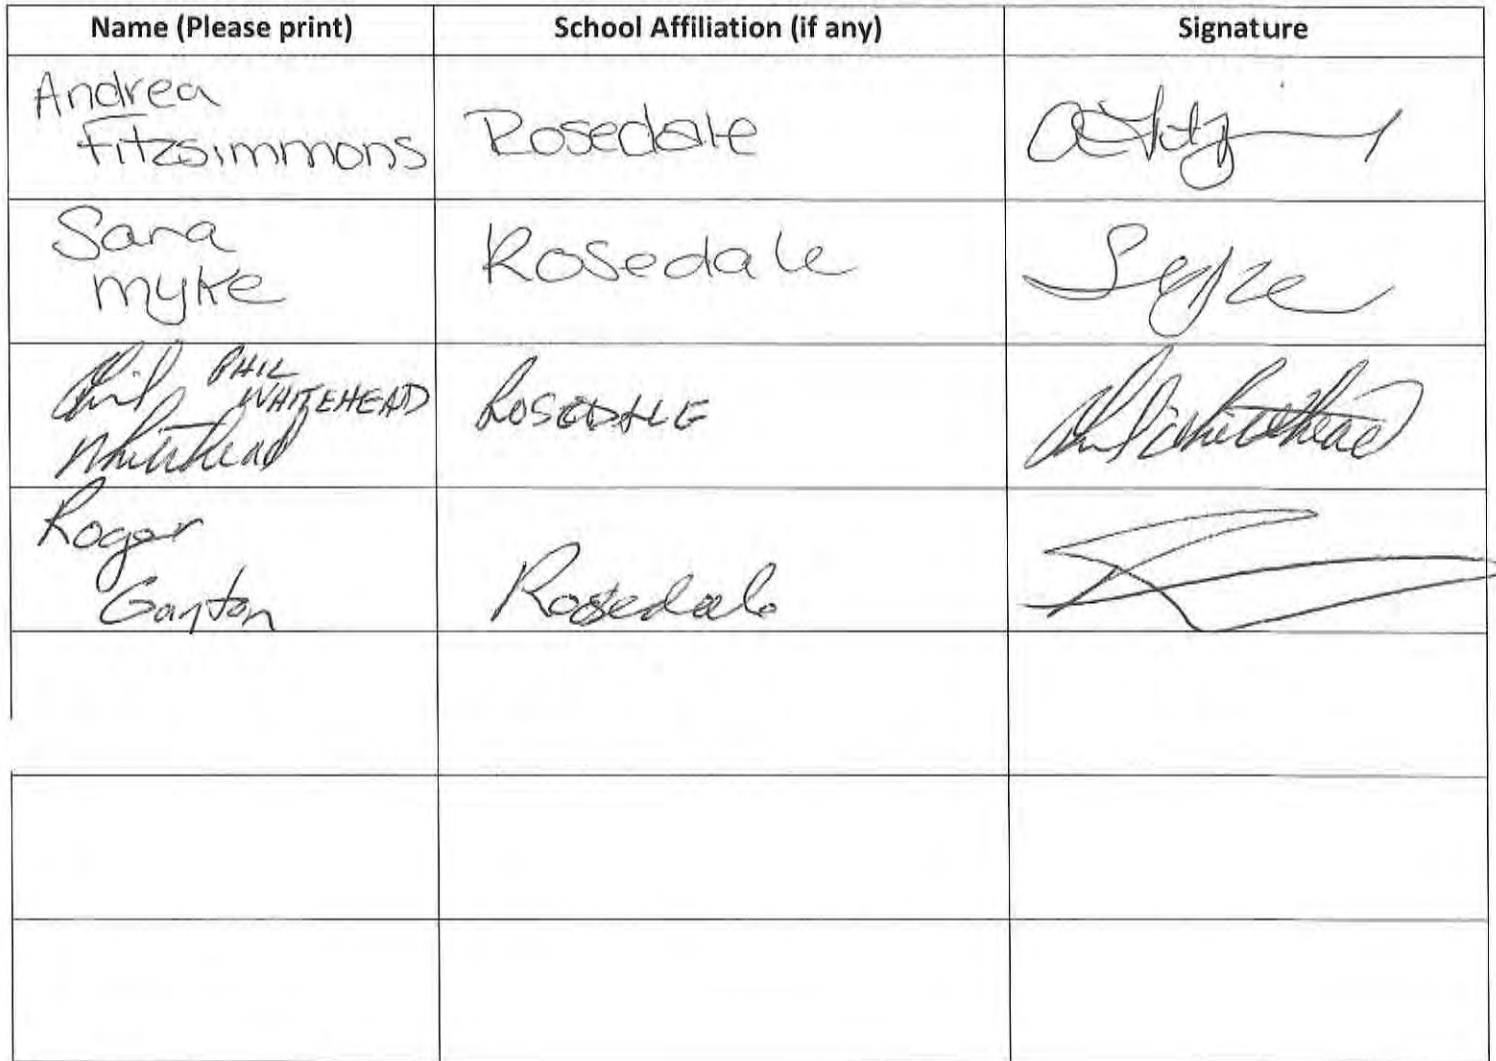 Name (Please print) School Affiliation (if any) Signature
Andrea
Fitzsimmons Rosedale
Sara
Myke Rosedale
Phil PHIL
WHITEHEAD ROSEDALE Phil Whitehead
Whitehead
Roger
Ganton Rosedale